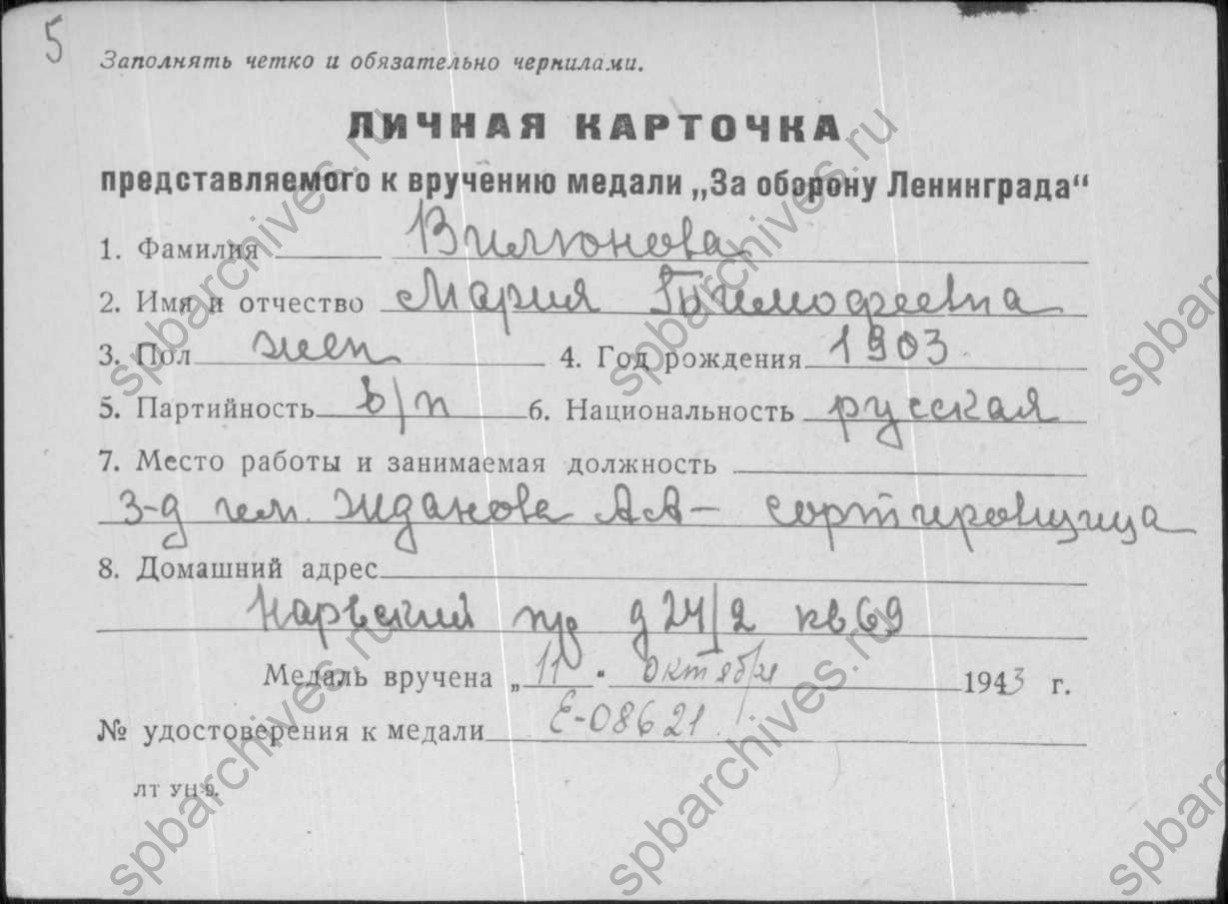 5
Заполнять четко и обязательно чернилами.
ЛИЧНАЯ КАРТОЧКА
представляемого к вручению медали „За оборону Ленинграда“
1. Фамилия Вилюнова
2. Имя и отчество Мария Тимофеевна
3. Пол жен 4. Год рождения 1903
5. Партийность б/п 6. Национальность русская
7. Место работы и занимаемая должность
З-д им. Жданова АА - сортировщица
8. Домашний адрес
Нарвский пр д 24/2 кв 69
Медаль вручена „11" октября 1943 г.
№ удостоверения к медали Е-08621
ЛТ УН 9.
spbarchives.ru
spbarchives.ru
spbarchives.ru
spbarchives.ru